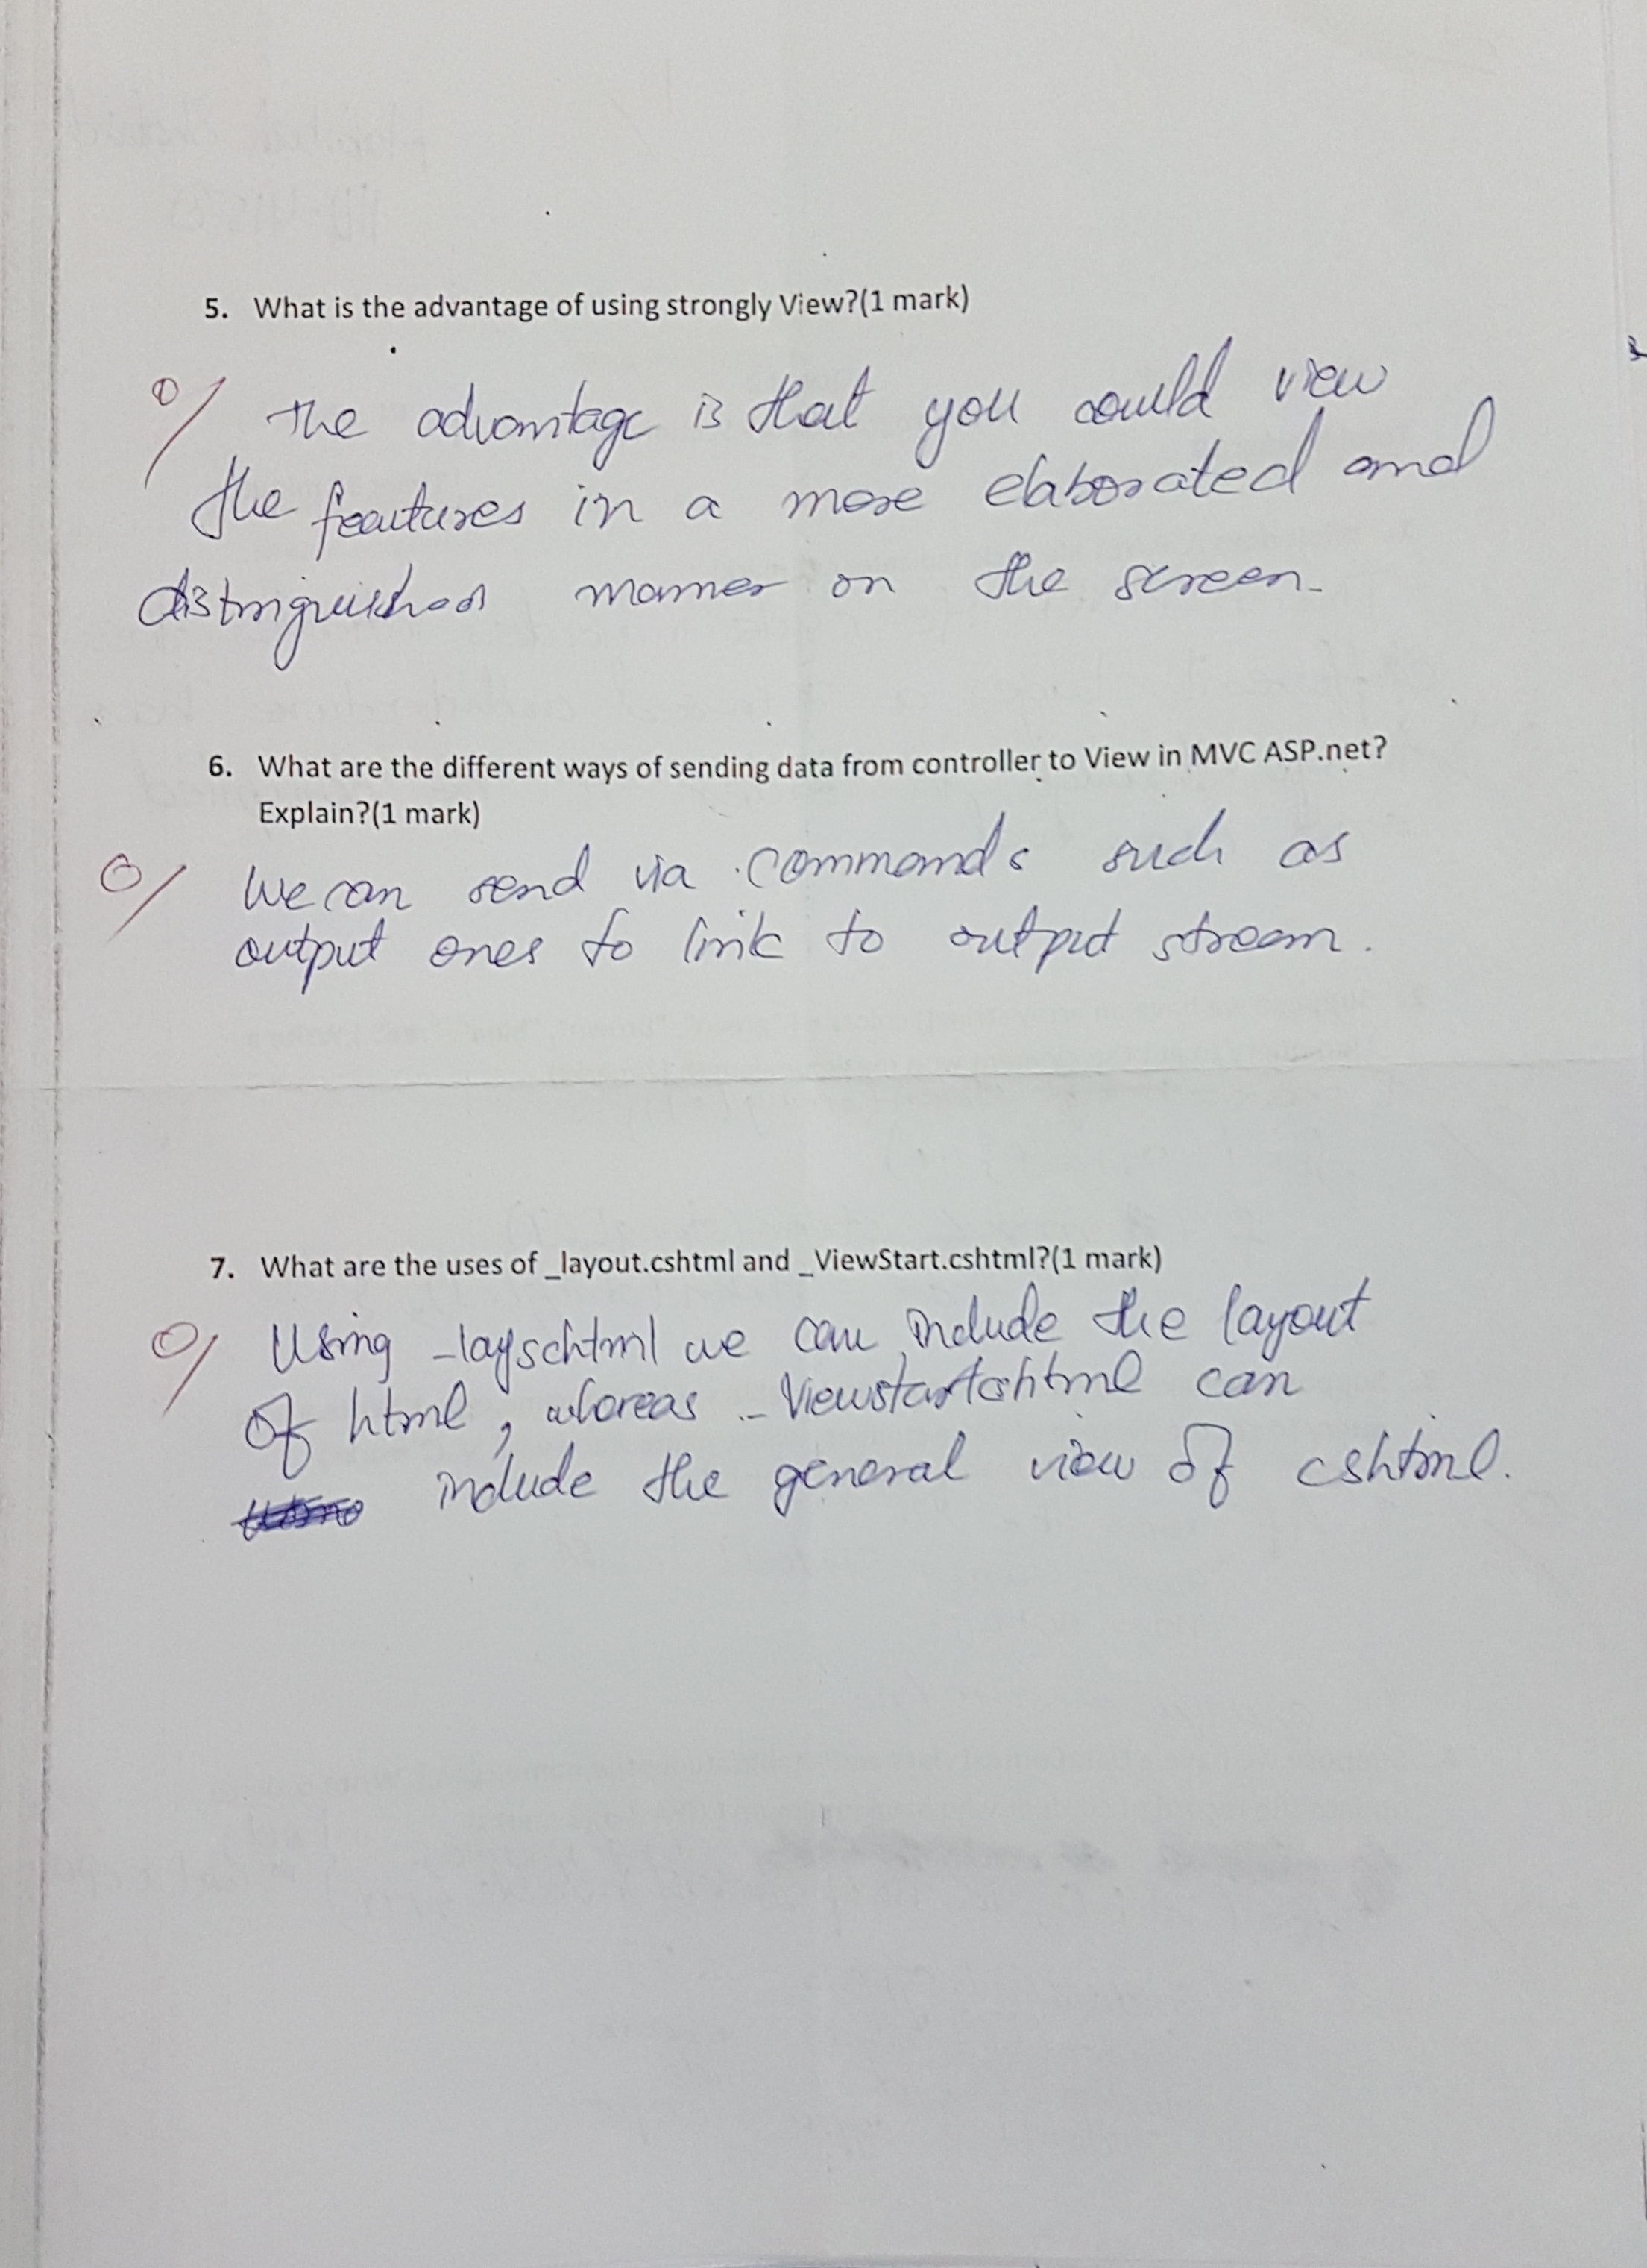 5. What is the advantage of using strongly View?(1 mark)
0/ The advantage is that you could view
the features in a more elaborated and
distinguished manner on the screen.
6. What are the different ways of sending data from controller to View in MVC ASP.net?
Explain?(1 mark)
0/ We can send via commands such as
output ones to link to output stream.
7. What are the uses of _layout.cshtml and _ViewStart.cshtml?(1 mark)
0/ Using _layschtml we can include the layout
of html, whereas _Viewstartcshtml can
include the general view of cshtml.